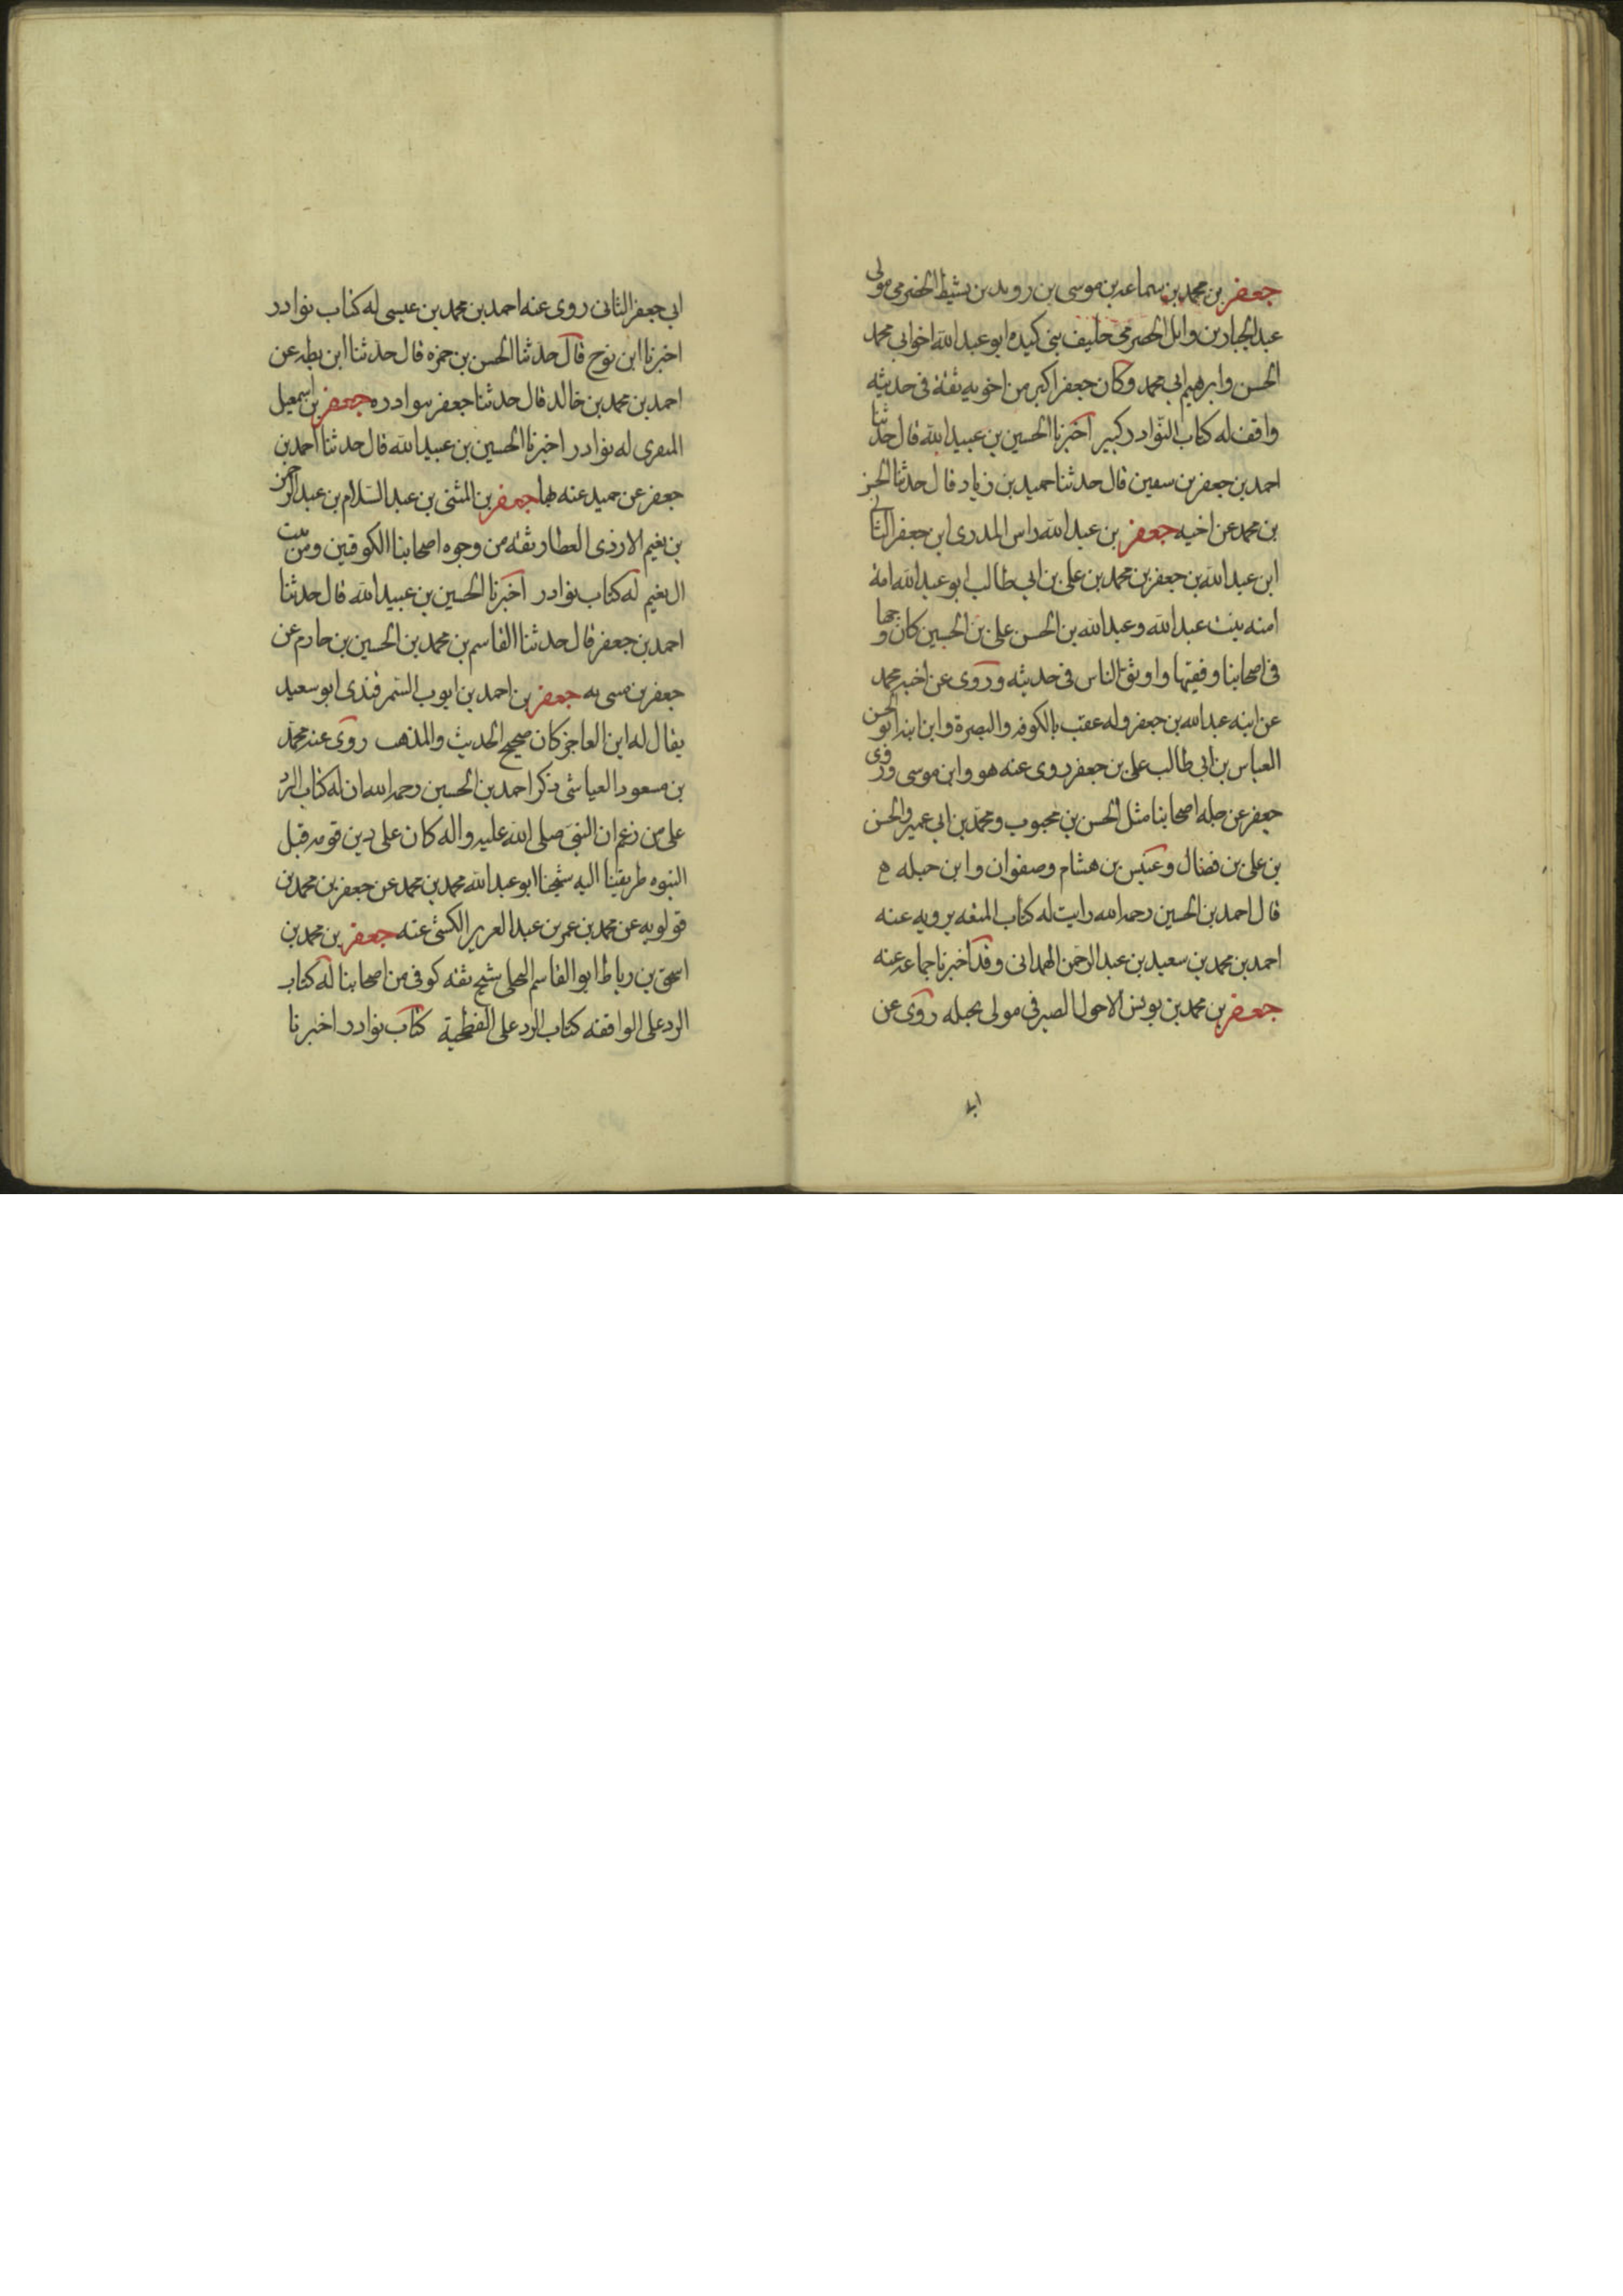 جعفر بن محمد بن سماعه بن موسى بن رويد بن نشيط الحضرمي مولى
عبد الجبار بن وايل الحضرمي حليف بني كيده ابو عبد الله اخو ابي محمد
الحسن وابرهيم ابي محمد وكان جعفر اكبر من اخويه ثقة في حديثه
واقف له كتاب النوادر كبير اخبرنا الحسين بن عبيد الله قال حدثنا
احمد بن جعفر بن سفين قال حدثنا حميد بن زياد قال حدثنا الحسن
بن محمد عن اخيه جعفر بن عبد الله راس المدرى ابن جعفر الثاني
ابن عبد الله بن جعفر بن محمد بن علي بن ابي طالب ابو عبد الله امه
امنه بنت عبد الله وعبد الله بن الحسن علي بن الحسين كان وجها
في اصحابنا وفقيها واوثق الناس في حديثه وروى عن اخيه محمد
عن ابيه عبد الله بن جعفر وله عقب بالكوفه والبصرة وابن ابنه ابو الحسن
العباس بن ابي طالب علي بن جعفر روى عنه هو وابن موسى وروى
جعفر عن جله اصحابنا مثل الحسن بن محبوب ومحمد بن ابي عمير والحسن
بن علي بن فضال وعبيس بن هشام وصفوان وابن جبله
قال احمد بن الحسين رحمه الله رايت له كتاب المتعه يرويه عنه
احمد بن محمد بن سعيد بن عبد الرحمن الهمداني وقد اخبرنا جماعه عنه
جعفر بن محمد بن يونس الاحول الصيرفي مولى بجيله روى عن
ابي
ابي جعفر الثاني روى عنه احمد بن محمد بن عيسى له كتاب نوادر
اخبرنا ابن نوح قال حدثنا الحسن بن حمزه قال حدثنا ابن بطه عن
احمد بن محمد بن خالد قال حدثنا جعفر بنوادره جعفر بن اسمعيل
المنقرى له نوادر اخبرنا الحسين بن عبيد الله قال حدثنا احمد بن
جعفر عن حميد عنه بها جعفر بن المثنى بن عبد السلام بن عبد الرحمن
بن نعيم الازدى العطار ثقه من وجوه اصحابنا الكوفيين ومن بيت
ال نعيم له كتاب نوادر اخبرنا الحسين بن عبيد الله قال حدثنا
احمد بن جعفر قال حدثنا القاسم بن محمد بن الحسين بن حازم عن
جعفر بن مسى به جعفر بن احمد بن ايوب السمرقندى ابو سعيد
يقال له ابن العاجز كان صحيح الحديث والمذهب روى عنه محمد
بن مسعود العياشى ذكر احمد بن الحسين رحمه الله ان له كتاب الرد
على من زعم ان النبي صلى الله عليه واله كان على دين قومه قبل
النبوه طريقنا اليه شيخنا ابو عبد الله محمد بن محمد عن جعفر بن محمد بن
قولويه عن محمد بن عمر بن عبد العزيز الكشى عنه جعفر بن محمد بن
اسحق بن رباط ابو القاسم البجلى شيخ ثقه كوفى من اصحابنا له كتاب
الرد على الواقفه كتاب الرد على الفطحية كتاب نوادر اخبرنا